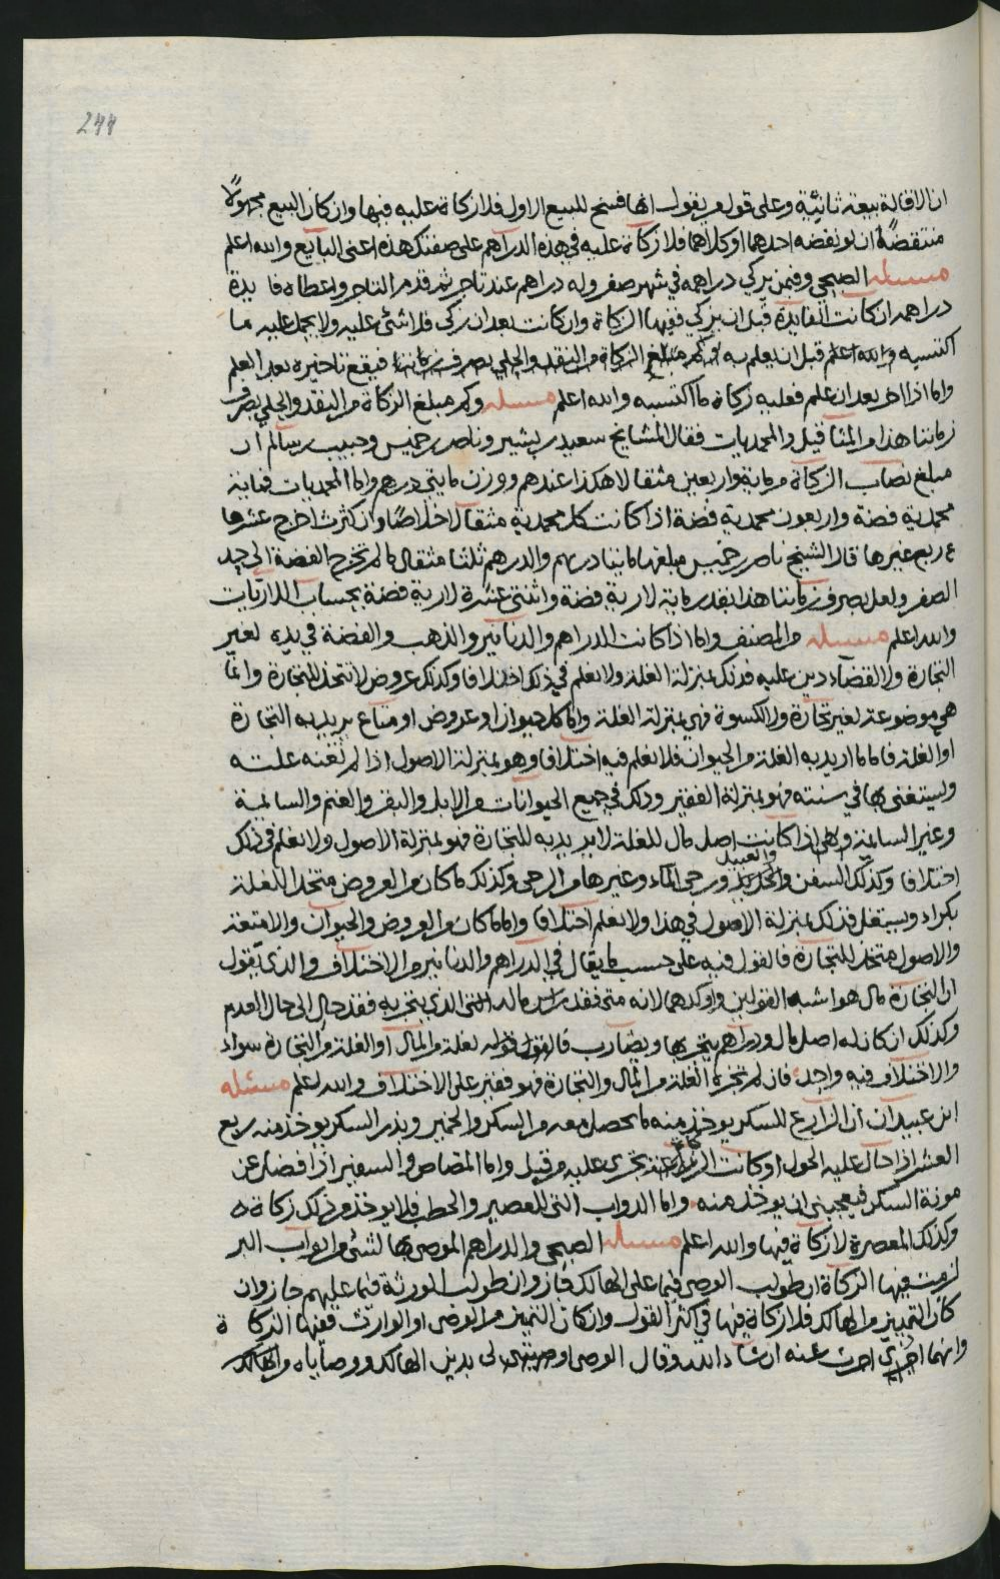 244
ان الاقالة بيعة ثانية وعلى قول من يقول انها فسخ للبيع الاول فلا زكاة عليه فيها وان كان البيع مجهولا
منتقضة ان لو نقضه احدهما او كلاهما فلا زكاة عليه في هذه الدراهم على صفتك هذه اعني البايع والله اعلم
مسئله الصبحي وفيمن يزكي دراهمه في شهر صفر وله دراهم عند تاجر ثم قدم التاجر واعطاه فايدة
دراهم ان كانت الفايدة قبل ان يزكي ففيها الزكاة وان كانت بعد ان زكى فلا شئ عليه ولا يحمل عليه ما
اكتسبه والله اعلم قبل ان يعلم به وكم مبلغ الزكاة من النقد والحلي بصرف زماننا فيقع تاخيره بعد العلم
واما اذا اخر بعد ان علم فعليه زكاة ما اكتسبه والله اعلم مسئله وكم مبلغ الزكاة من النقد والحلي بصرف
زماننا هذا من المثاقيل والمحمديات فقال المشايخ سعيد بن بشير وناصر بن خميس وحبيب بن سالم ان
مبلغ نصاب الزكاة من ماية واربعين مثقالا هكذا عندهم ووزن مايتي درهم واما المحمديات فماية
محمدية فضة واربعون محمدية فضة اذا كانت كل محمدية مثقالا خالصا وان كثرت اخرج عشرها
ربع عشرها قال الشيخ ناصر بن خميس مبلغها مايتا درهم والدرهم ثلثا مثقال ما لم تخرج الفضة الى حد
الصفر ولعل بصرف زماننا هذا بقدر ماية لارية فضة واثنتي عشرة لارية فضة بحساب اللاريات
والله اعلم مسئله من المصنف واما اذا كانت الدراهم والدنانير والذهب والفضة في يده لغير
التجارة ولا لقضاء دين عليه فذلك بمنزلة الغلة ولا نعلم في ذلك اختلافا وكذلك عروض لا تتخذ للتجارة وانما
هي موضوعة لغير تجارة ولا لكسوة فهي بمنزلة الغلة واما كل حيوان او عروض او متاع يريد به التجارة
او الغلة فاما ما اريد به الغلة من الحيوان فلا نعلم فيه اختلافا وهو بمنزلة الاصول اذا لم تغنه غلته
ويستغني بها في سنته فهو بمنزلة الفقير وذلك في جميع الحيوانات من الابل والبقر والغنم والسايمة
وغير السايمة وهي اذا كانت اصل مال للغلة لا يريد به للتجارة فهو بمنزلة الاصول ولا نعلم في ذلك
والعبيد
اختلافا وكذلك السفن ورحى الماء وغيرها من الرحي وكذلك ما كان من العروض متخذا للغلة
بكراء ويستغل فذلك بمنزلة الاصول في هذا ولا نعلم اختلافا واما ما كان من العروض والحيوان والامتعة
والاصول متخذ للتجارة فالقول فيه على حسب ما يقال في الدراهم والدنانير من الاختلاف والذي يقول
ان التجارة مال هو اشبه القولين واوكدهما لانه متى فقد راس ماله التي الذي يتجر به فقد حال الى حال العدم
وكذلك ان كان له اصل مال ودراهم يتجر بها ويضارب فالقول قوله بغلة من المال او الغلة من التجارة سواء
والاختلاف فيه واحد فان لم تجزه الغلة من المال والتجارة فهو فقير على الاختلاف والله اعلم مسئله
ابن عبيدان ان الزارع للسكر يوخذ منه ما تحصل معه من السكر والخمير وبذر السكر يوخذ منه ربع
العشر اذا حال عليه الحول او كانت الزكاة تجري عليه من قبل واما المقصاص والسفير اذا فضل عن
مونة السكر فيعجبني ان يوخذ منه واما الدواب التي للعصير والحطب فلا يوخذ من ذلك زكاة
وكذلك المعصرة لا زكاة فيها والله اعلم مسئله الصبحي والدراهم الموصى بها لشئ من ابواب البر
لزمت فيها الزكاة ان طولب الوصي فيما على الهالك فجاز وان طولب الورثة فيما عليهم جاز وان
كان التمييز من الهالك فلا زكاة فيها في اكثر القول وان كان التمييز من الوصي او الوارث ففيها الزكاة
وايهما اخرج اجزت عنه ان شاء الله وقال الوصي لي بدين الهالك ووصاياه